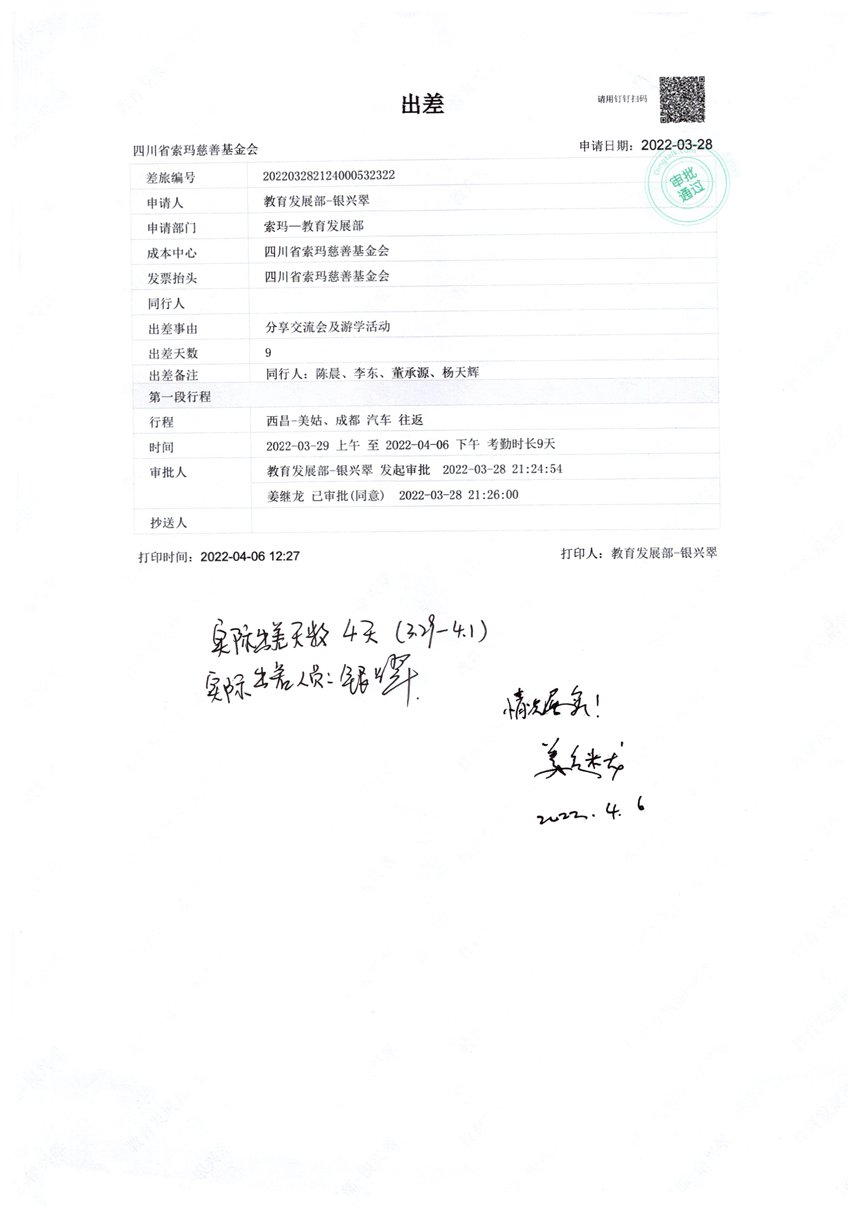 出差
请用钉钉扫码
四川省索玛慈善基金会 申请日期：2022-03-28
审批通过
差旅编号 202203282124000532322
申请人 教育发展部-银兴翠
申请部门 索玛—教育发展部
成本中心 四川省索玛慈善基金会
发票抬头 四川省索玛慈善基金会
同行人
出差事由 分享交流会及游学活动
出差天数 9
出差备注 同行人：陈晨、李东、董承源、杨天辉
第一段行程
行程 西昌-美姑、成都 汽车 往返
时间 2022-03-29 上午 至 2022-04-06 下午 考勤时长9天
审批人 教育发展部-银兴翠 发起审批 2022-03-28 21:24:54
姜继龙 已审批(同意) 2022-03-28 21:26:00
抄送人
打印时间：2022-04-06 12:27 打印人：教育发展部-银兴翠
实际出差天数 4天（3.29-4.1）
实际出差人员：银兴翠.
情况属实！
姜继龙
2022.4.6